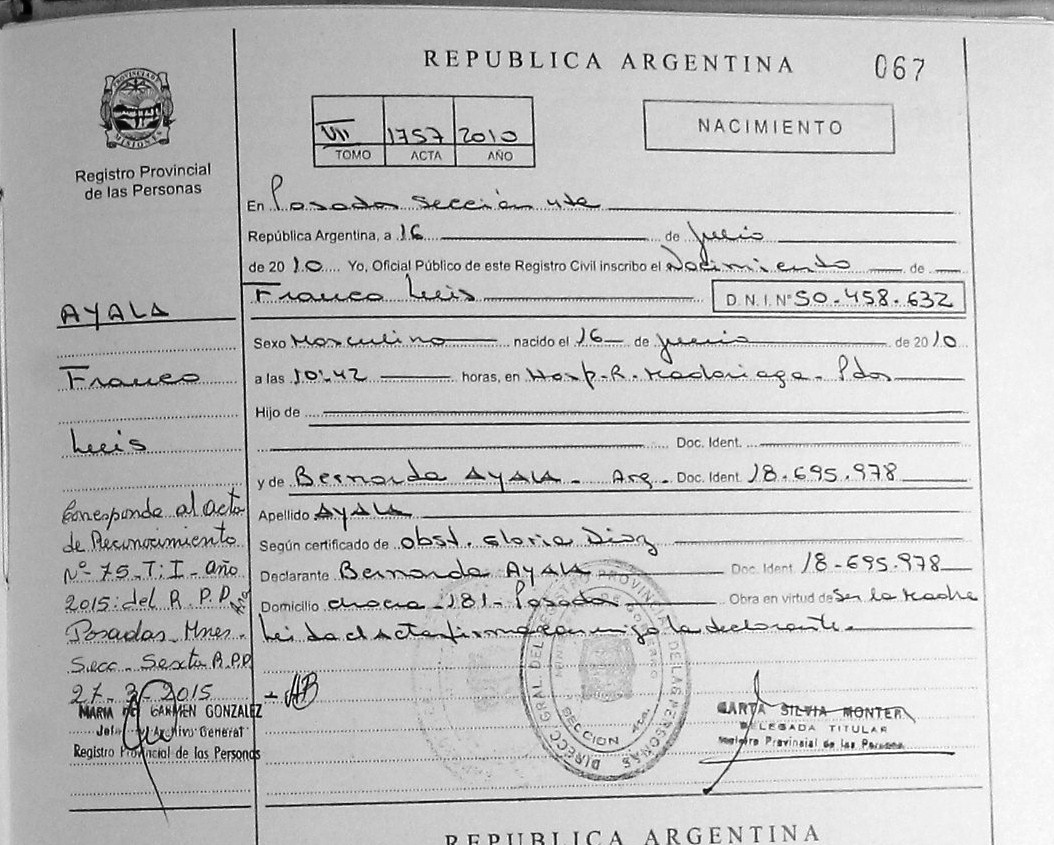 REPUBLICA ARGENTINA
067
PROVINCIA DE
MISIONES
Registro Provincial
de las Personas
VII 1757 2010
TOMO ACTA AÑO
NACIMIENTO
En Posadas Sección 4ta
República Argentina, a 16 de Julio
de 2010 Yo, Oficial Público de este Registro Civil inscribo el Nacimiento de
Franco Luis D.N.I.Nº 50.458.632
Sexo Masculino nacido el 16 de Junio de 2010
a las 10:42 horas, en Hosp. R. Madariaga - Pdas
Hijo de
Doc. Ident.
y de Bernarda AYALA - Arg. Doc. Ident. 18.695.978
Apellido AYALA
Según certificado de obst. Gloria Diaz
Declarante Bernarda AYALA Doc. Ident 18-695-978
Domicilio chacra -181- Posadas Obra en virtud de Ser la Madre
Leida el Acta firma conmigo la declarante.
AYALA
Franco
Luis
Corresponde al Acta
de Reconocimiento
Nº 75 - T: I - año
2015 del R.P.P.
Posadas Mnes.
Secc. Sexta R.P.P.
27-3-2015
MARIA DEL CARMEN GONZALEZ
Archivo General
Registro Provincial de las Personas
DIRECC. GRAL. DEL REGISTRO PROVINCIAL DE LAS PERSONAS
SECCION 4ta.
SILVIA MONTER
DELEGADA TITULAR
Registro Provincial de las Personas
REPUBLICA ARGENTINA